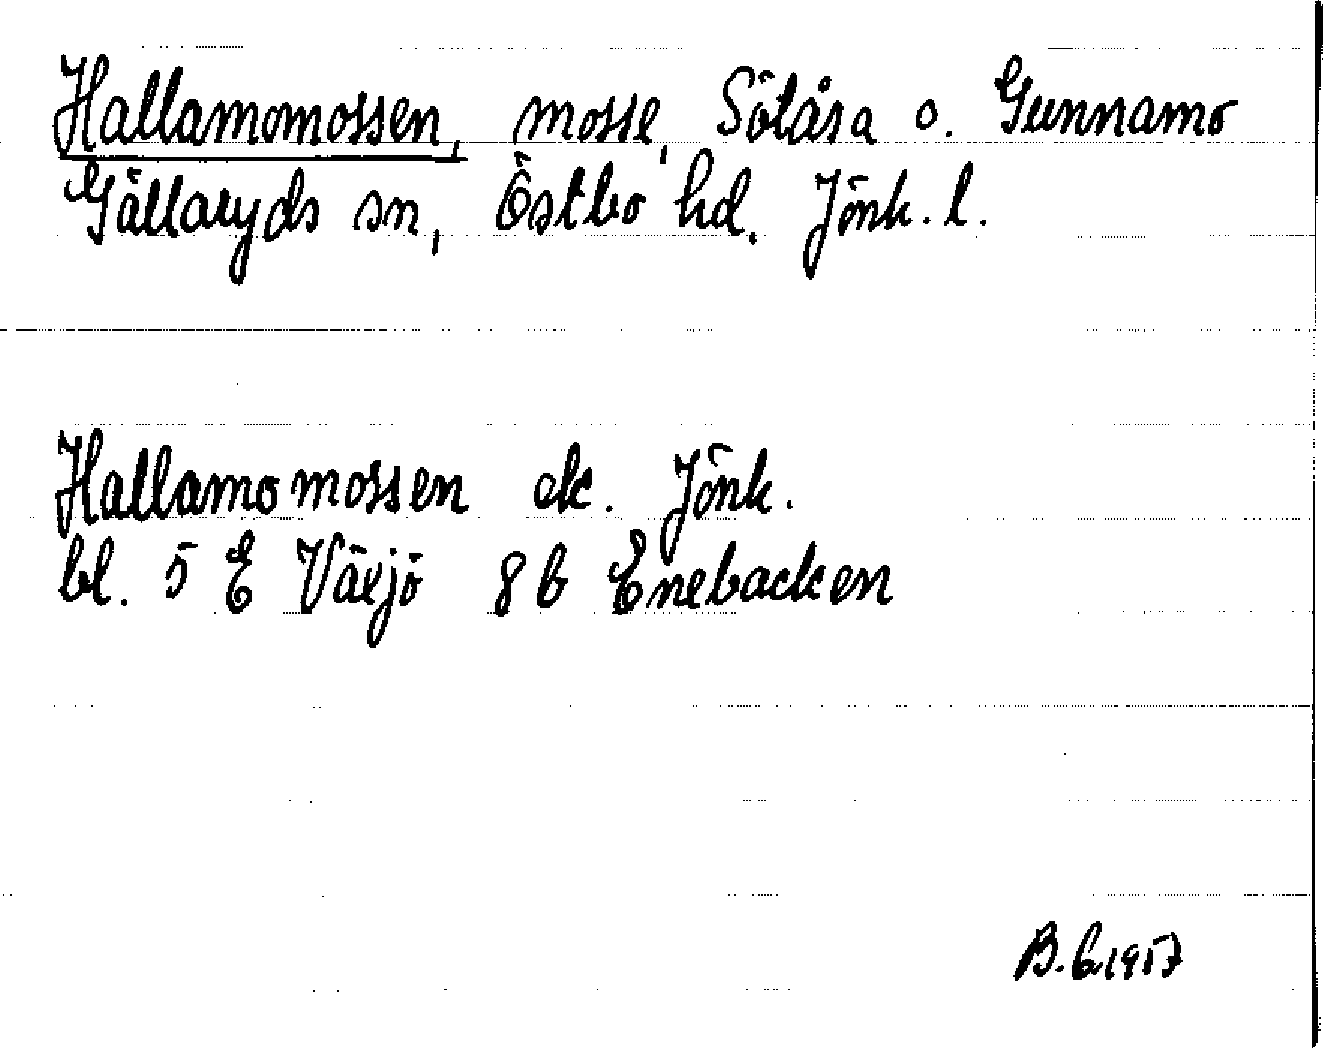 Hallamomossen, mosse, Sötåsa o. Gunnamo
Gällaryds sn, Östbo hd. Jönk. l.
Hallamomossen ek. Jönk.
bl. 5 E Växjö 8b Enebacken
1957